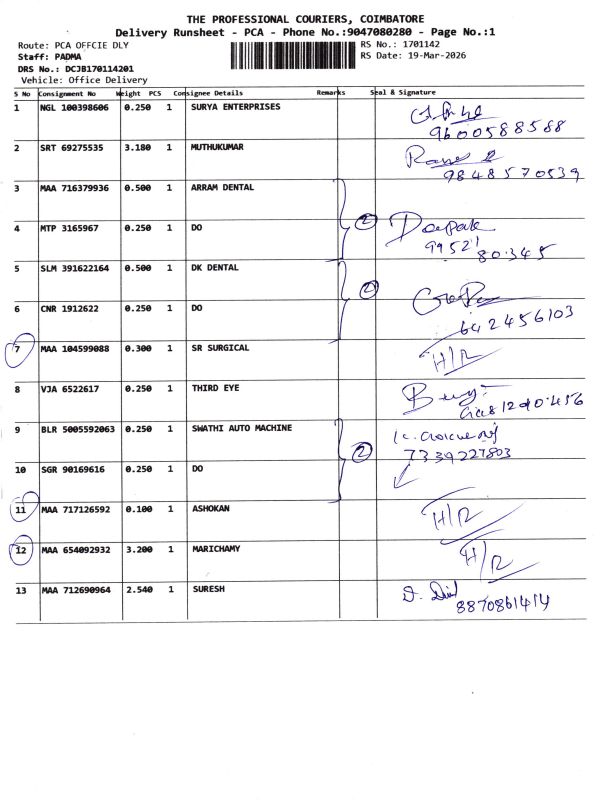 THE PROFESSIONAL COURIERS, COIMBATORE
Delivery Runsheet - PCA - Phone No.:9047080280 - Page No.:1
Route: PCA OFFCIE DLY RS No.: 1701142
Staff: PADMA RS Date: 19-Mar-2026
DRS No.: DCJB170114201
Vehicle: Office Delivery
S No Consignment No Weight PCS Consignee Details Remarks Seal & Signature
1 NGL 100398606 0.250 1 SURYA ENTERPRISES
9600588588
2 SRT 69275535 3.180 1 MUTHUKUMAR
9848570539
3 MAA 716379936 0.500 1 ARRAM DENTAL
4 MTP 3165967 0.250 1 DO 2 Deepak
99521
80345
5 SLM 391622164 0.500 1 DK DENTAL 2
6 CNR 1912622 0.250 1 DO
642456103
7 MAA 104599088 0.300 1 SR SURGICAL H/R
8 VJA 6522617 0.250 1 THIRD EYE
9 BLR 5005592063 0.250 1 SWATHI AUTO MACHINE 2
7339227803
10 SGR 90169616 0.250 1 DO
11 MAA 717126592 0.100 1 ASHOKAN H/R
12 MAA 654092932 3.200 1 MARICHAMY H/R
13 MAA 712690964 2.540 1 SURESH
8870861414